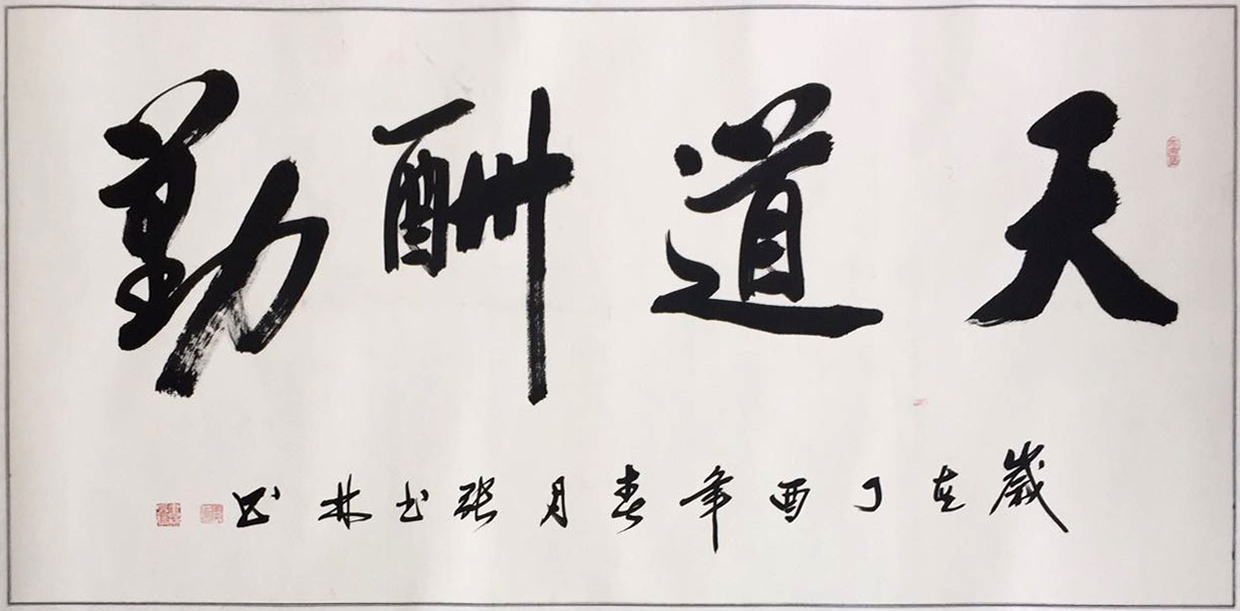 天道酬勤
歲在丁酉年春月張书林书